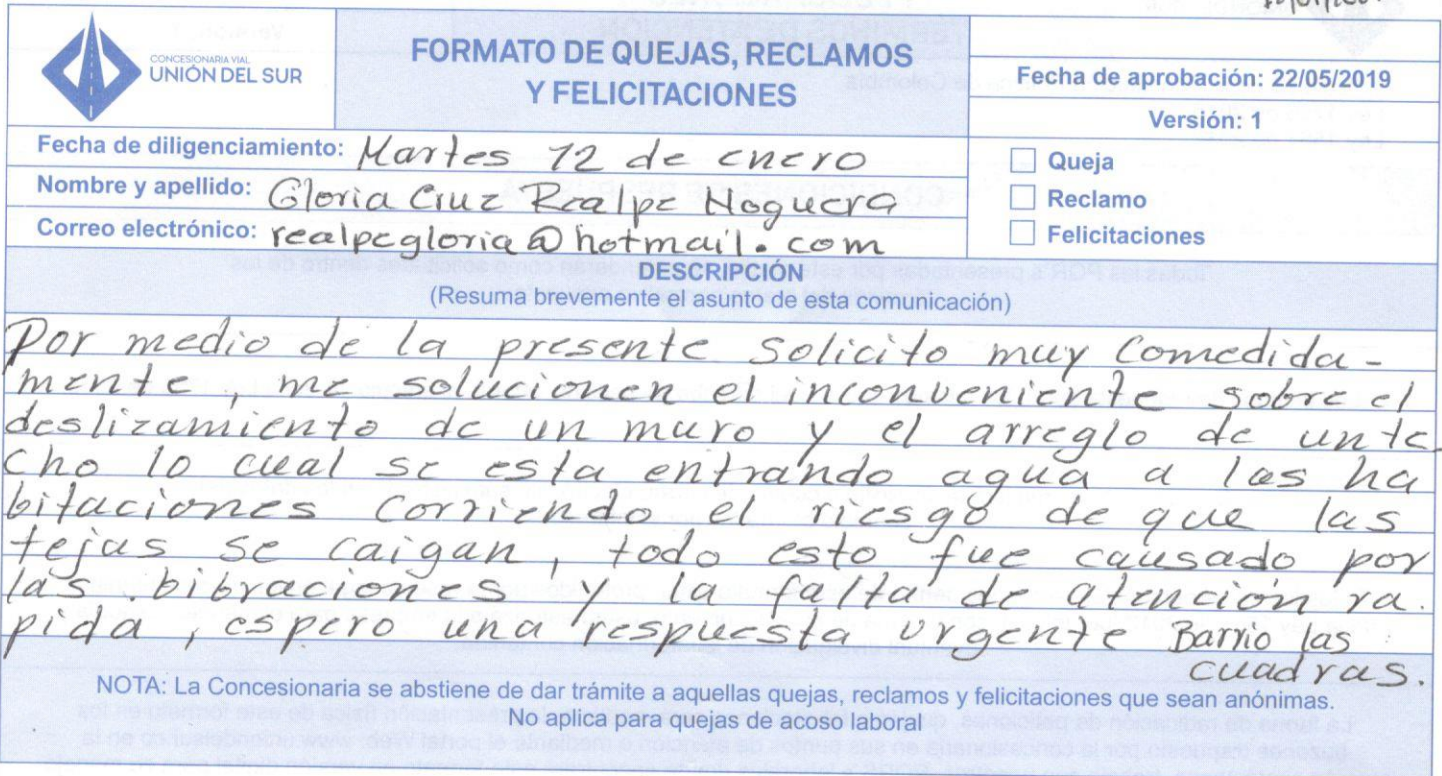 CONCESIONARIA VIAL
UNIÓN DEL SUR
FORMATO DE QUEJAS, RECLAMOS
Y FELICITACIONES
Fecha de aprobación: 22/05/2019
Versión: 1
Fecha de diligenciamiento: Martes 12 de enero
Nombre y apellido: Gloria Cruz Realpe Noguera
Correo electrónico: realpegloria@hotmail.com
Queja
Reclamo
Felicitaciones
DESCRIPCIÓN
(Resuma brevemente el asunto de esta comunicación)
Por medio de la presente solicito muy Comedida-
mente, me solucionen el inconveniente sobre el
deslizamiento de un muro y el arreglo de un te-
cho lo cual se esta entrando agua a las ha
bitaciones Corriendo el riesgo de que las
tejas se caigan, todo esto fue causado por
las bibraciones y la falta de atención ra.
pida, espero una respuesta urgente Barrio las
cuadras.
NOTA: La Concesionaria se abstiene de dar trámite a aquellas quejas, reclamos y felicitaciones que sean anónimas.
No aplica para quejas de acoso laboral